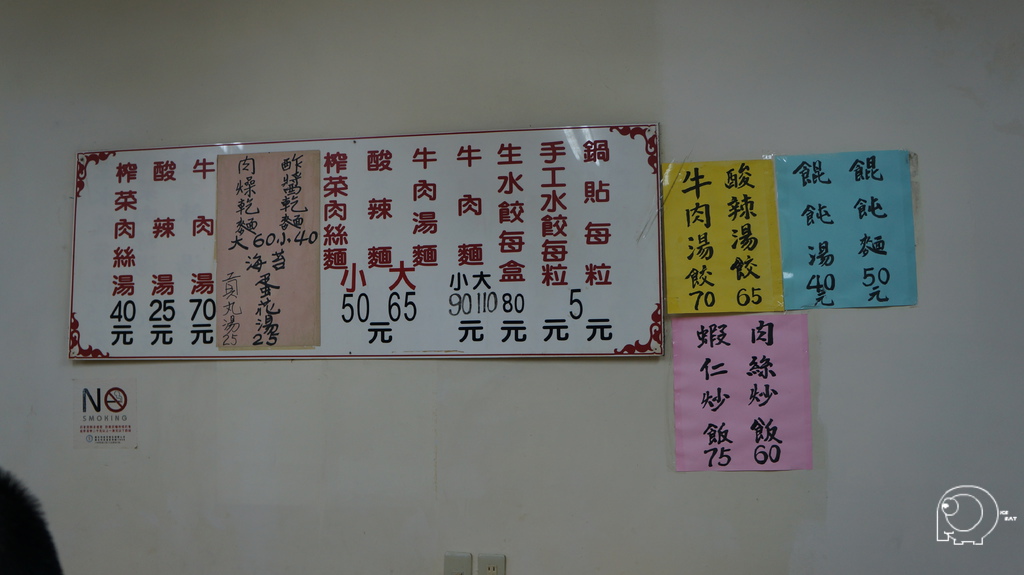 鍋貼每粒
手工水餃每粒
5元 元
生水餃每盒
80元
牛肉麵
大110
小90
元
牛肉湯麵
酸辣麵
榨菜肉絲麵
大65
小50
元
酢醬乾麵
肉燥乾麵
大60小40
海苔蛋花湯25
貢丸湯25
牛肉湯70元
酸辣湯25元
榨菜肉絲湯40元
酸辣湯餃65
牛肉湯餃70
餛飩麵50元
餛飩湯40元
肉絲炒飯60
蝦仁炒飯75
NO
SMOKING
ICE
EAT